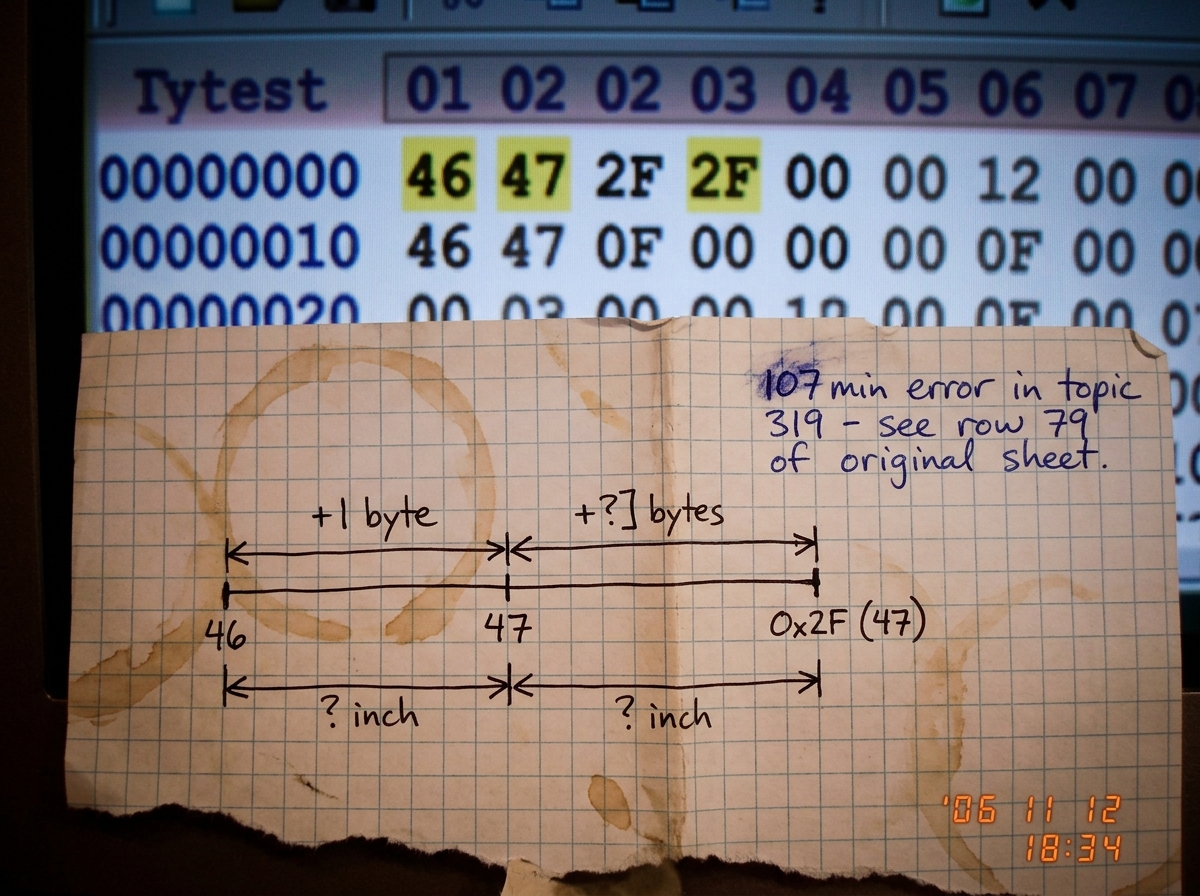 Tytest 01 02 02 03 04 05 06 07
00000000 46 47 2F 2F 00 00 12 00
00000010 46 47 0F 00 00 00 0F 00
00000020 00 03 00 00 12 00 0F 00
107 min error in topic
319 - see row 79
of original sheet.
+1 byte +?] bytes
46 47 0x2F (47)
? inch ? inch
'06 11 12
18:34